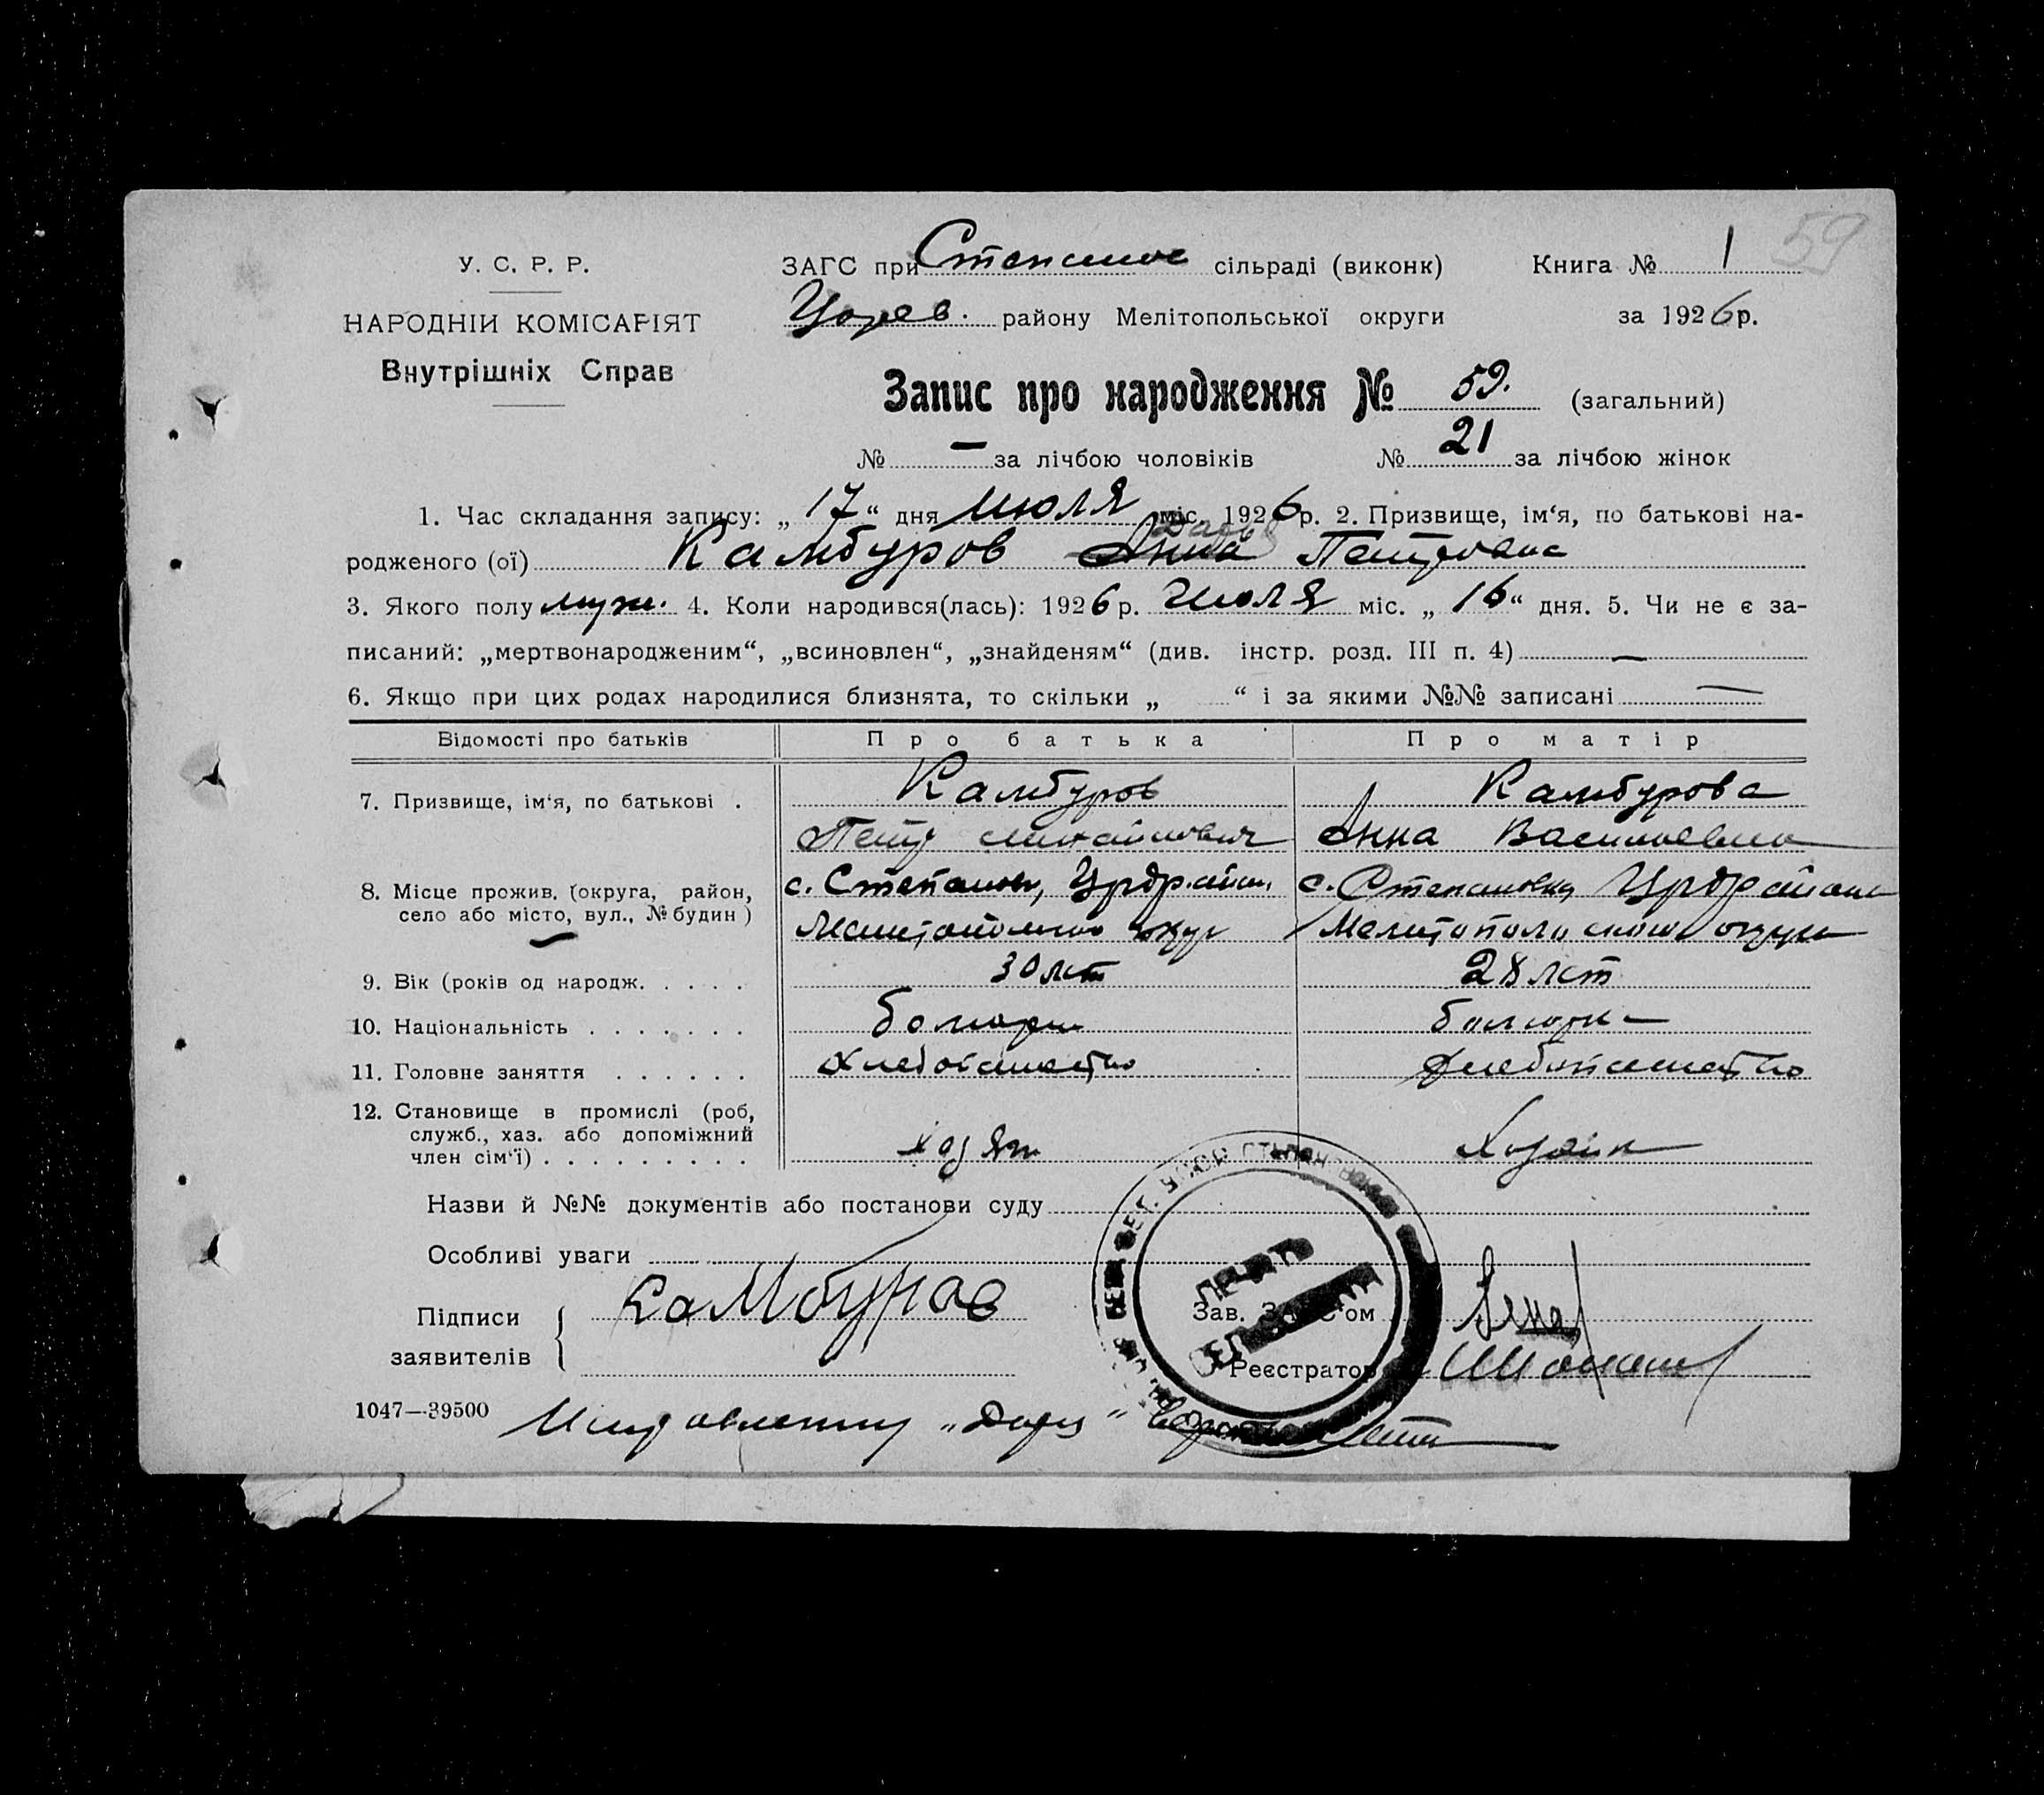 59
У. С. Р. Р.
НАРОДНІЙ КОМІСАРІЯТ
Внутрішніх Справ
ЗАГС при сільраді (виконк) Книга № 1
Царев. району Мелітопольської округи за 1926 р.
Запис про народження № 59. (загальний)
№ — за лічбою чоловіків № 21 за лічбою жінок
1. Час складання запису: „ 17 “ дня Июля міс. 1926 р. 2. Призвище, ім‘я, по батькові на-
Дарья
родженого (ої) Камбуров Анна Петровна
3. Якого полу муж. 4. Коли народився(лась): 1926 р. Июля міс. „ 16 “ дня. 5. Чи не є за-
писаний: „мертвонародженим“, „всиновлен“, „знайденям“ (див. інстр. розд. III п. 4) —
6. Якщо при цих родах народилися близнята, то скільки „ “ і за якими №№ записані —
Відомості про батьків Про батька Про матір
7. Призвище, ім‘я, по батькові . Камбуров Камбурова
Петр Михайлович Анна Васильевна
8. Місце прожив. (округа, район, с. Степановк, с. Степановка
село або місто, вул., № будин ) Мелитопольского округ Мелитопольского округа
9. Вік (років од народж. . . . . 30 лет 28 лет
10. Національність . . . . . . . болгарин болгарка
11. Головне заняття . . . . . . хлебопашество хлебопашество
12. Становище в промислі (роб,
служб., хаз. або допоміжний
член сім‘ї) . . . . . . . . . хозяин Хозяин
Назви й №№ документів або постанови суду
Особливі уваги
Підписи Камбуров Зав. ЗАГС‘ом
заявителів Реєстратор
1047—39500